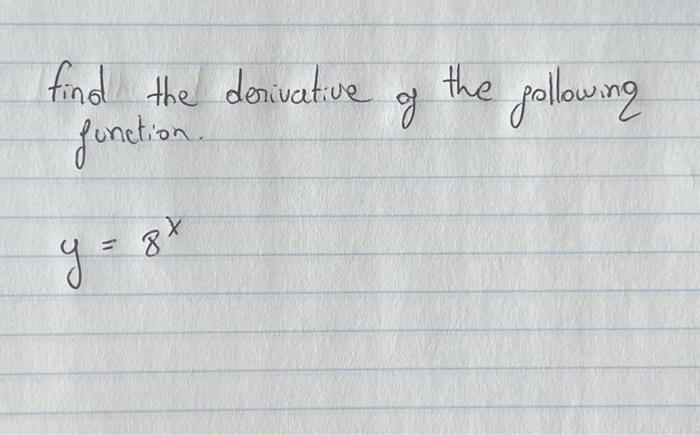 find the derivative of the following
function.
y = 8^x